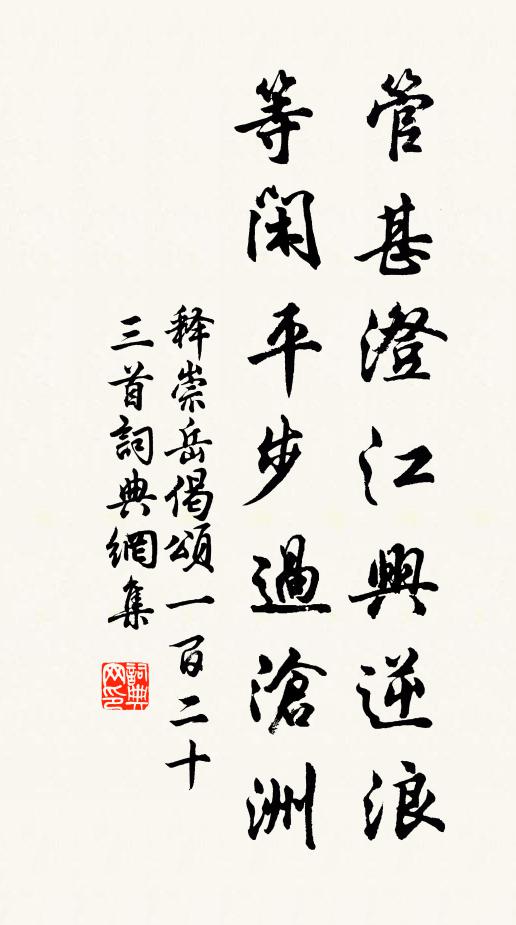 管甚澄江興逆浪
等閑平步過滄洲
释崇岳偈頌一百二十
三首詞典網集
詞典网印